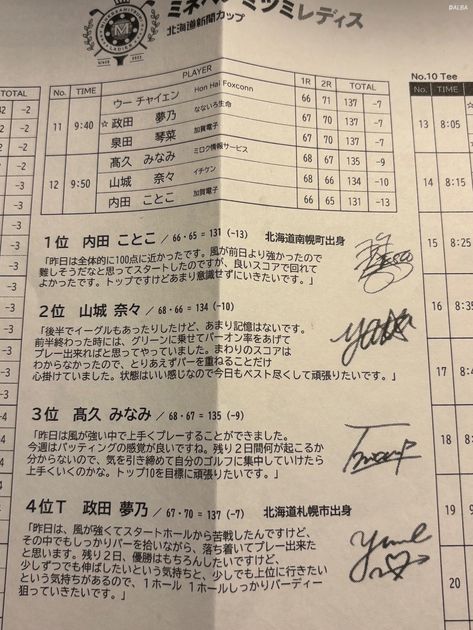 ©ALBA
ミネベアミツミレディス
北海道新聞カップ
No.10 Tee
TOTAL
No. TIME PLAYER 1R 2R TOTAL
11 9:40 ウー チャイェン Hon Hai Foxconn 66 71 137 -7
☆ 政田 夢乃 なないろ生命 67 70 137 -7
泉田 琴菜 加賀電子 67 70 137 -7
12 9:50 髙久 みなみ ミロク情報サービス 68 67 135 -9
山城 奈々 イチケン 68 66 134 -10
内田 ことこ 加賀電子 66 65 131 -13
No. TIME
13 8:05
14 8:15
15 8:25
16 8:35
17 8:4
18
19
20
1位 内田 ことこ / 66・65 = 131 (-13) 北海道南幌町出身
「昨日は全体的に100点に近かったです。風が前日より強かったので
難しそうだなと思ってスタートしたのですが、良いスコアで回れて
よかったです。トップですけどあまり意識せずにいきたいです。」
2位 山城 奈々 / 68・66 = 134 (-10)
「後半でイーグルもあったりしたけど、あまり記憶はないです。
前半終わった時には、グリーンに乗せてパーオン率をあげて
プレー出来ればと思ってやっていました。まわりのスコアは
わからなかったので、とりあえずバーを重ねることだけ
心掛けていました。状態はいい感じなので今日もベスト尽くして頑張りたいです。」
3位 髙久 みなみ / 68・67 = 135 (-9)
「昨日は風が強い中で上手くプレーすることができました。
今週はパッティングの感覚が良いですね。残り2日間何が起こるか
分からないので、気を引き締めて自分のゴルフに集中していけたら
上手くいくのかな。トップ10を目標に頑張りたいです。」
4位T 政田 夢乃 / 67・70 = 137 (-7) 北海道札幌市出身
「昨日は、風が強くてスタートホールから苦戦したんですけど、
その中でもしっかりバーを拾いながら、落ち着いてプレー出来た
と思います。残り2日、優勝はもちろんしたいですけど、
少しずつでも伸ばしたいという気持ちと、少しでも上位に行きたい
という気持ちがあるので、1ホール 1ホールしっかりバーディー
狙っていきたいです。」